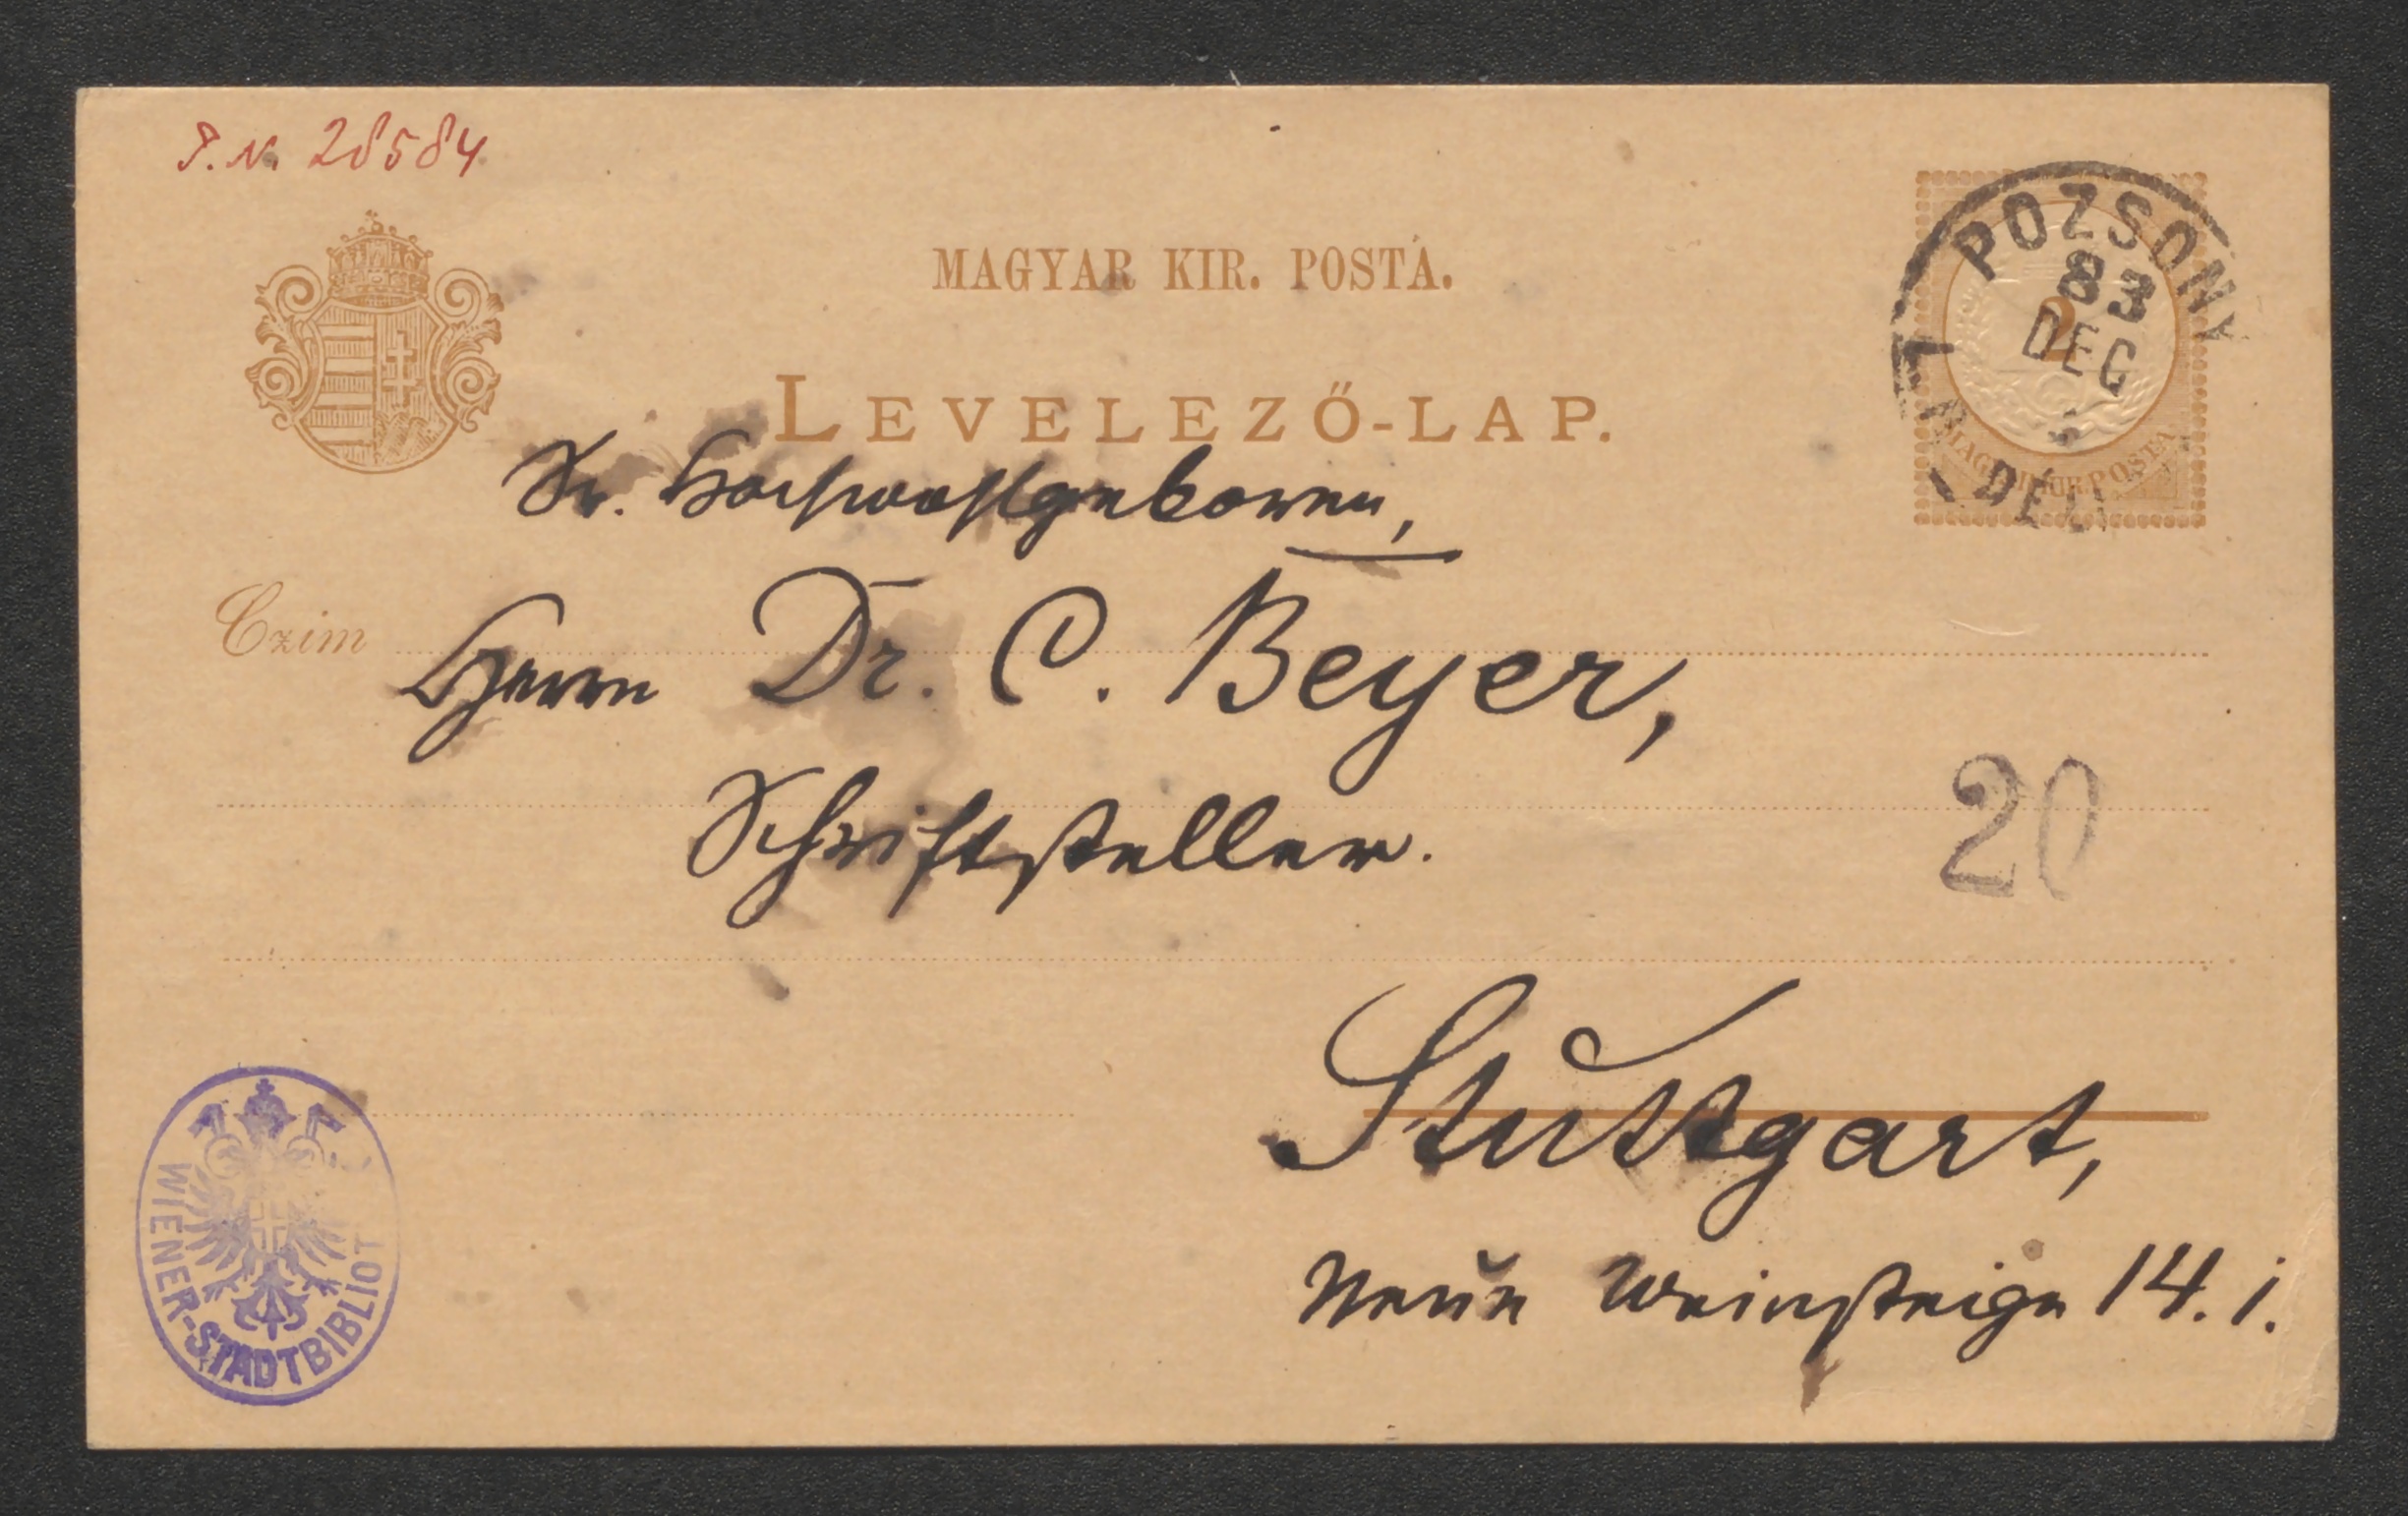 I.N. 28584
MAGYAR KIR. POSTA.
LEVELEZŐ-LAP.
POZSONY
83
DEC
DÉLI
2
MAGY. KIR. POSTA
Sr. Hochwohlgeboren,
Czim
Herrn Dr. C. Beyer,
Schriftsteller.
20
Stuttgart,
Neue Weinsteige 14. i.
WIENER-STADTBIBLIOT